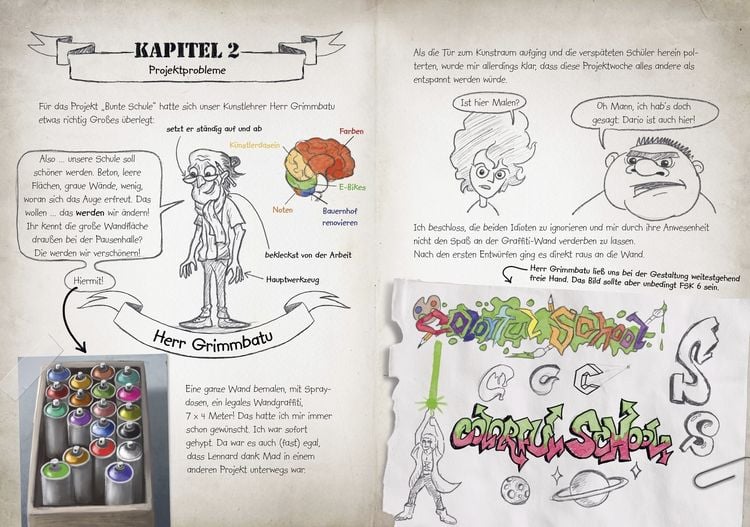 KAPITEL 2
Projektprobleme
Für das Projekt „Bunte Schule“ hatte sich unser Kunstlehrer Herr Grimmbatu
etwas richtig Großes überlegt:
setzt er ständig auf und ab
Also ... unsere Schule soll
schöner werden. Beton, leere
Flächen, graue Wände, wenig,
woran sich das Auge erfreut. Das
wollen ... das werden wir ändern!
Ihr kennt die große Wandfläche
draußen bei der Pausenhalle?
Die werden wir verschönern!
Hiermit!
Künstlerdasein
Farben
E-Bikes
Noten
Bauernhof
renovieren
bekleckst von der Arbeit
Hauptwerkzeug
Herr Grimmbatu
Eine ganze Wand bemalen, mit Spray-
dosen, ein legales Wandgraffiti,
7 x 4 Meter! Das hatte ich mir immer
schon gewünscht. Ich war sofort
gehypt. Da war es auch (fast) egal,
dass Lennard dank Mad in einem
anderen Projekt unterwegs war.
Als die Tür zum Kunstraum aufging und die verspäteten Schüler herein pol-
terten, wurde mir allerdings klar, dass diese Projektwoche alles andere als
entspannt werden würde.
Ist hier Malen?
Oh Mann, ich hab's doch
gesagt: Dario ist auch hier!
Ich beschloss, die beiden Idioten zu ignorieren und mir durch ihre Anwesenheit
nicht den Spaß an der Graffiti-Wand verderben zu lassen.
Nach den ersten Entwürfen ging es direkt raus an die Wand.
Herr Grimmbatu ließ uns bei der Gestaltung weitestgehend
freie Hand. Das Bild sollte aber unbedingt FSK 6 sein.
Colorful School
G G C
S
S
COLORFUL SCHOOL